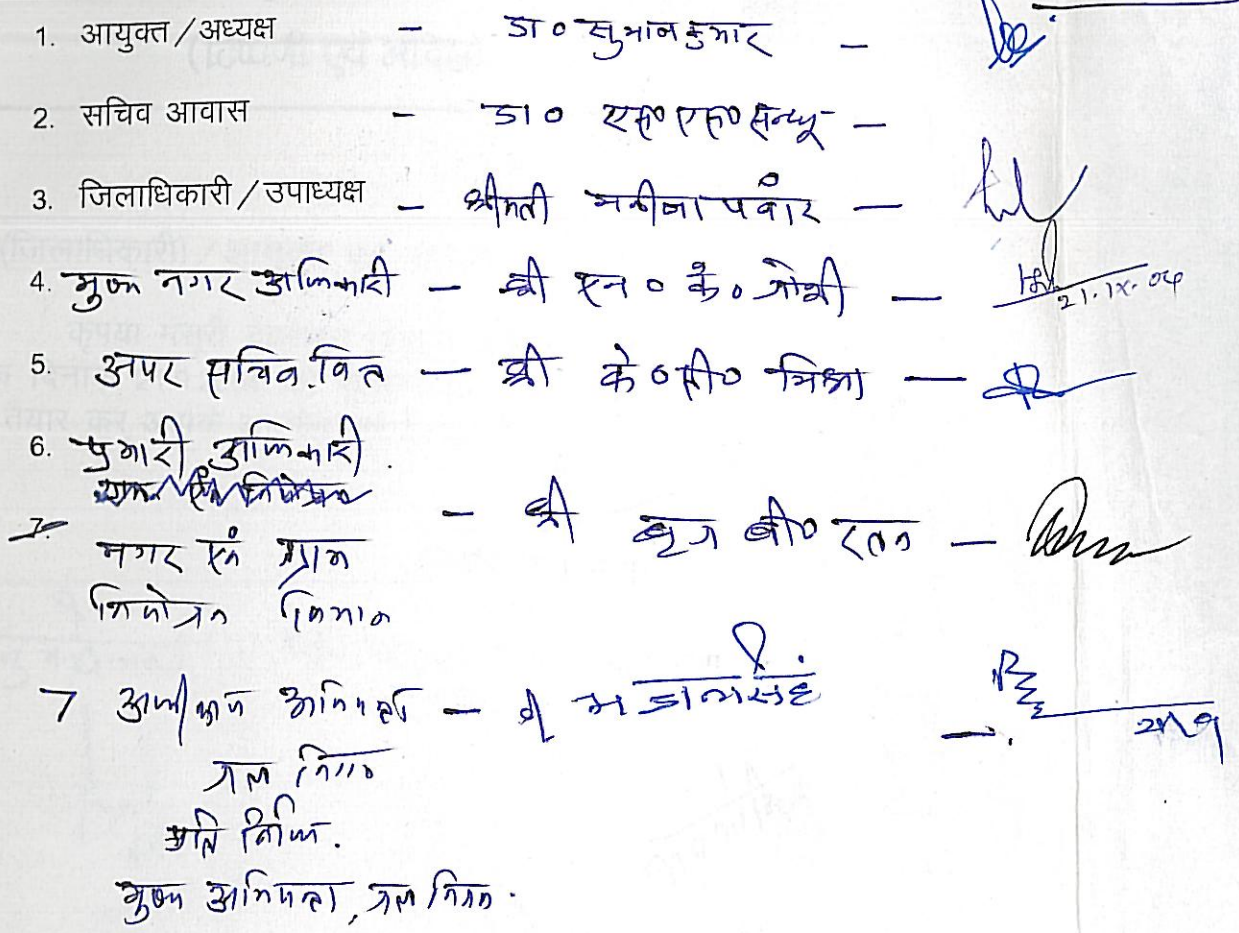 1. आयुक्त / अध्यक्ष – डा० सुभाष कुमार –
2. सचिव आवास – डा० एस० एस० सन्धू –
3. जिलाधिकारी / उपाध्यक्ष – श्रीमती मनीषा पंवार –
4. मुख्य नगर अधिकारी – श्री एन० के० जोशी – 21.IX.04
5. अपर सचिव. वित्त – श्री के० सी० मिश्रा –
6. प्रभारी अधिकारी. – श्री बृज बी० रतन –
नगर एवं ग्राम
नियोजन विभाग
7 अधीक्षण अभियन्ता –
जल निगम
प्रति निधि.
मुख्य अभियन्ता, जल निगम.